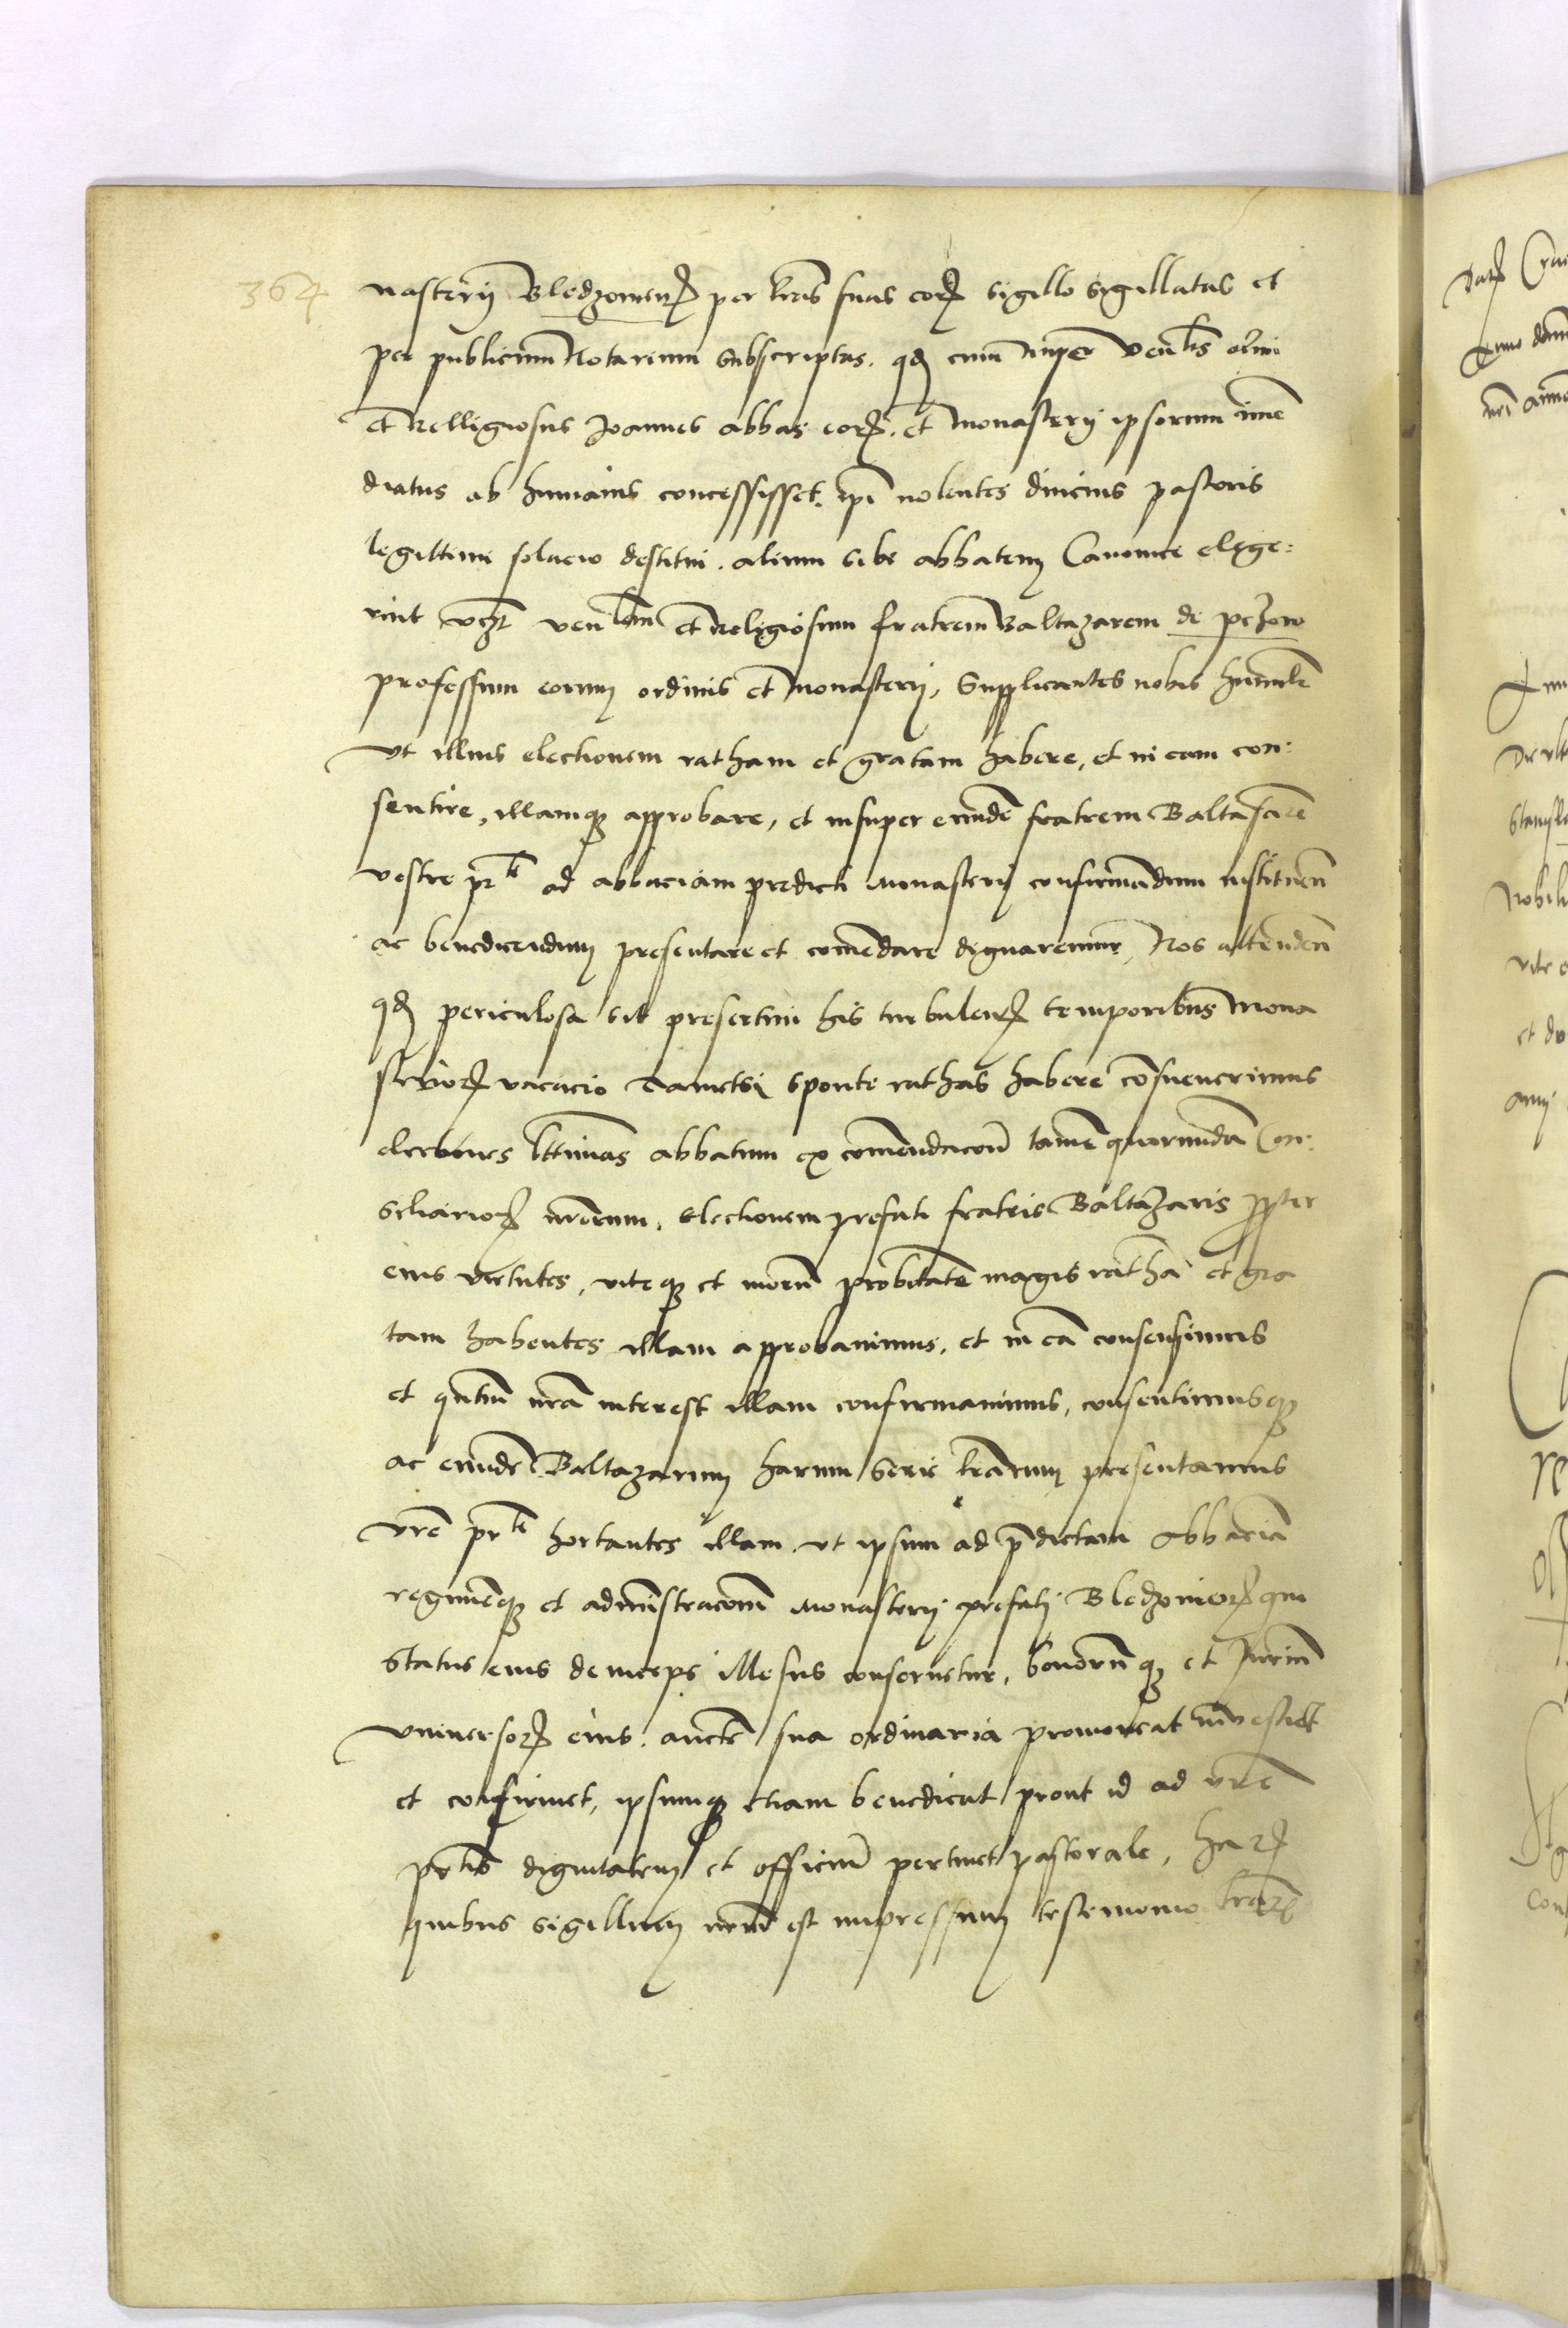 364
nasterij Bledzomenꝝ per lr̃as suas eorꝝ sigillo sigillatas et
per publicum Notarium subscriptas. qđ cum nuper Venlis olim
et Relligiosus Joannes abbas eorꝝ. et Monasterij ipsorum ime
diatus ab humanis concessisset. ipi nolentes diucius pastoris
legittimi solacio destitui. alium sibi abbatem Canonice elege:
rint vcꝫt venlem et Religiosum fratrem Baltazarem de pczew
professum eorum ordinis et Monasterij, Supplicantes nobis humilr̃
vt illius electionem ratham et gratam habere, et in eam con:
sentire, illamqꝫ approbare, et insuper eundē fratrem Baltasarē
vestre prti ad abbaciam predicti Monasterij confirmandum instituen̄
ac benedicendum presentare et comendare dignaremur, Nos attenden̄
qđ periculosa sit presertim his turbulenꝝ temporibus mona
steriorꝝ vacacio Tametsi sponte rathas habere cōsueuerimus
electiones lttimas abbatum ex comendacōe tamē quorundā Con:
siliariorꝝ nrōrum, electionem prefati fratris Baltazaris ꝓpter
eius virtutes, vite qꝫ et morū probitatē magis rathā et gra
tam habentes illam approbauimus, et in eā consensimus
et qntum nrā interest illam confirmauimus, consentimusqꝫ
ac eundē Baltazarum harum serie lrārum presentamus
vrē prti hortantes illam. vt ipsum ad p̄dictam abbaciā
regimēqꝫ et administracōem Monasterij prefatj Bledzouieorꝝ quo
status eius deinceps illesus conseruetur, bonorūqꝫ et Jurium
vniuersorꝝ eius. aucte sua ordinaria promoueat inuestiat
et confirmet, ipsumqꝫ etiam benedicat prout id ad vrē
prtis dignitatem et officiū pertinet pastorale, harꝝ
quibus sigillum nrūm est impressum testimonio lrārꝝ